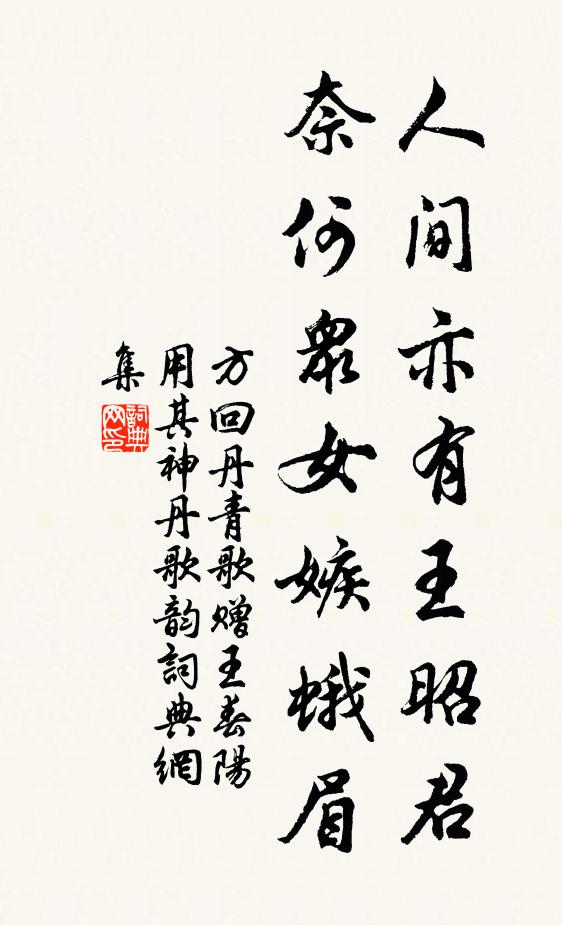 人間亦有王昭君
奈何眾女嫉蛾眉
方回丹青歌贈王春陽
用其神丹歌韵詞典網
集
詞典
网印